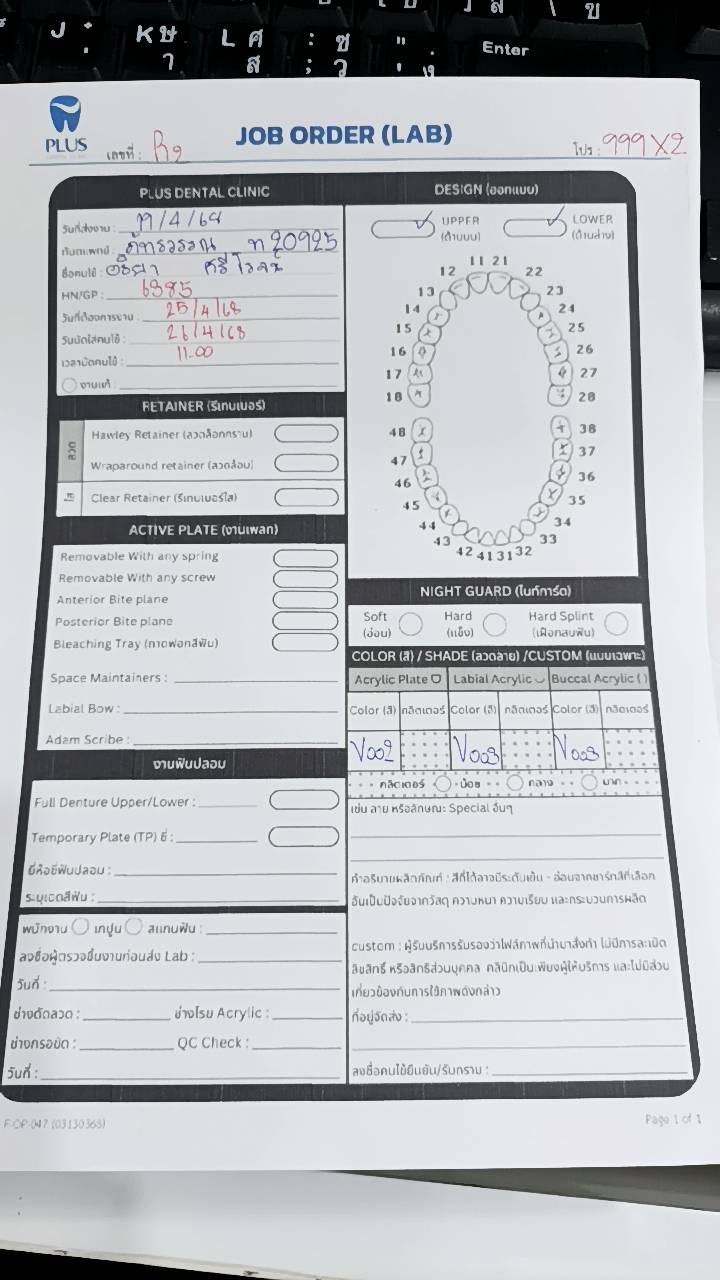 Enter
PLUS
JOB ORDER (LAB)
เลขที่ : R2
โปร : 999X2
PLUS DENTAL CLINIC
วันที่ส่งงาน : 19/4/68
ทันตแพทย์ : ภัทรวรรณ ท 20925
ชื่อคนไข้ : อริยา ศรีโรจน์
HN/GP : 6385
วันที่ต้องการงาน : 25/4/68
วันนัดใส่คนไข้ : 26/4/68
เวลานัดคนไข้ : 11.00
งานแก้ :
RETAINER (รีเทนเนอร์)
ลวด
Hawley Retainer (ลวดล็อกกราม)
Wraparound retainer (ลวดล้อม)
ใส
Clear Retainer (รีเทนเนอร์ใส)
ACTIVE PLATE (งานเพลท)
Removable With any spring
Removable With any screw
Anterior Bite plane
Posterior Bite plane
Bleaching Tray (ถาดฟอกสีฟัน)
Space Maintainers :
Labial Bow :
Adam Scribe :
งานฟันปลอม
Full Denture Upper/Lower :
Temporary Plate (TP) ซี่ :
ยี่ห้อซี่ฟันปลอม :
ระบุเฉดสีฟัน :
พนักงาน เทปูน สแกนฟัน :
ลงชื่อผู้ตรวจชิ้นงานก่อนส่ง Lab :
วันที่ :
ช่างดัดลวด : ช่างโรย Acrylic :
ช่างกรอขัด : QC Check :
วันที่ :
DESIGN (ออกแบบ)
UPPER (ด้านบน) LOWER (ด้านล่าง)
11 21
12 22
13 23
14 24
15 25
16 26
17 27
18 28
48 38
47 37
46 36
45 35
44 34
43 33
42 41 31 32
NIGHT GUARD (ไนท์การ์ด)
Soft (อ่อน) Hard (แข็ง) Hard Splint (เฝือกสบฟัน)
COLOR (สี) / SHADE (ลวดลาย) /CUSTOM (แบบเฉพาะ)
Acrylic Plate Labial Acrylic Buccal Acrylic ( )
Color (สี) กลิตเตอร์ Color (สี) กลิตเตอร์ Color (สี) กลิตเตอร์
V002 V003 V003
กลิตเตอร์ น้อย กลาง มาก
เช่น ลาย หรือลักษณะ Special อื่นๆ
คำอธิบายผลิตภัณฑ์ : สีที่ได้อาจมีระดับเข้ม - อ่อนจากชาร์ทสีที่เลือก
อันเป็นปัจจัยจากวัสดุ ความหนา ความเรียบ และกระบวนการผลิต
custom : ผู้รับบริการรับรองว่าไฟล์ภาพที่นำมาสั่งทำ ไม่มีการละเมิด
ลิขสิทธิ์ หรือสิทธิส่วนบุคคล คลินิกเป็นเพียงผู้ให้บริการ และไม่มีส่วน
เกี่ยวข้องกับการใช้ภาพดังกล่าว
ที่อยู่จัดส่ง :
ลงชื่อคนไข้ยืนยัน/รับทราบ :
F-OP-047 (03130368)
Page 1 of 1